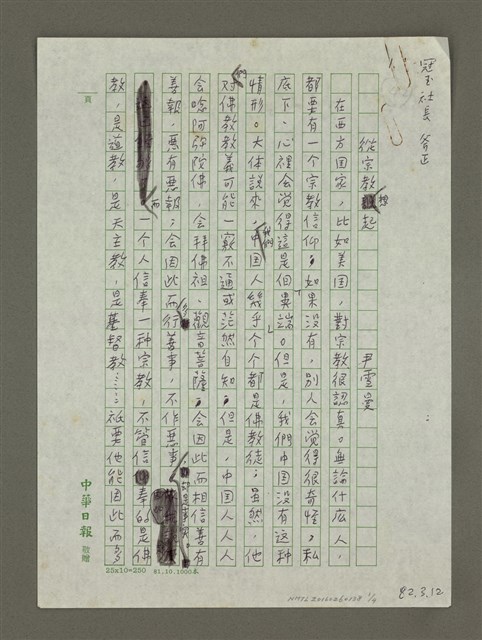 冠玉社長 斧正
從宗教想起
尹雪曼
在西方国家，比如美国，對宗教很認真。無論什庅人，
都要有一个宗教信仰；如果没有，别人会觉得很奇怪。私
底下、心裡会觉得這是個異端。但是，我們中国没有这种
情形。大体說來，我們中国人幾乎个个都是佛教徒；虽然，他
們对佛教教義可能一竅不通或茫然自知，但是，中国人人人
会唸阿弥陀佛，会拜佛祖、觀音菩薩，会因此而相信善有
善報，惡有惡報；会因此而多行善事，不作惡事，
而一个人信奉一种宗教，不管信奉的是佛
教，是道教，是天主教，是基督教……祇要他能因此而多
頁
中華日報 敬贈
25x10=250 81.10.1000本
NMTL20120260138 1/4
82.3.12